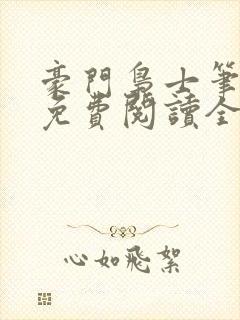 豪門梟士筆
免費閱讀全
心如飛絮